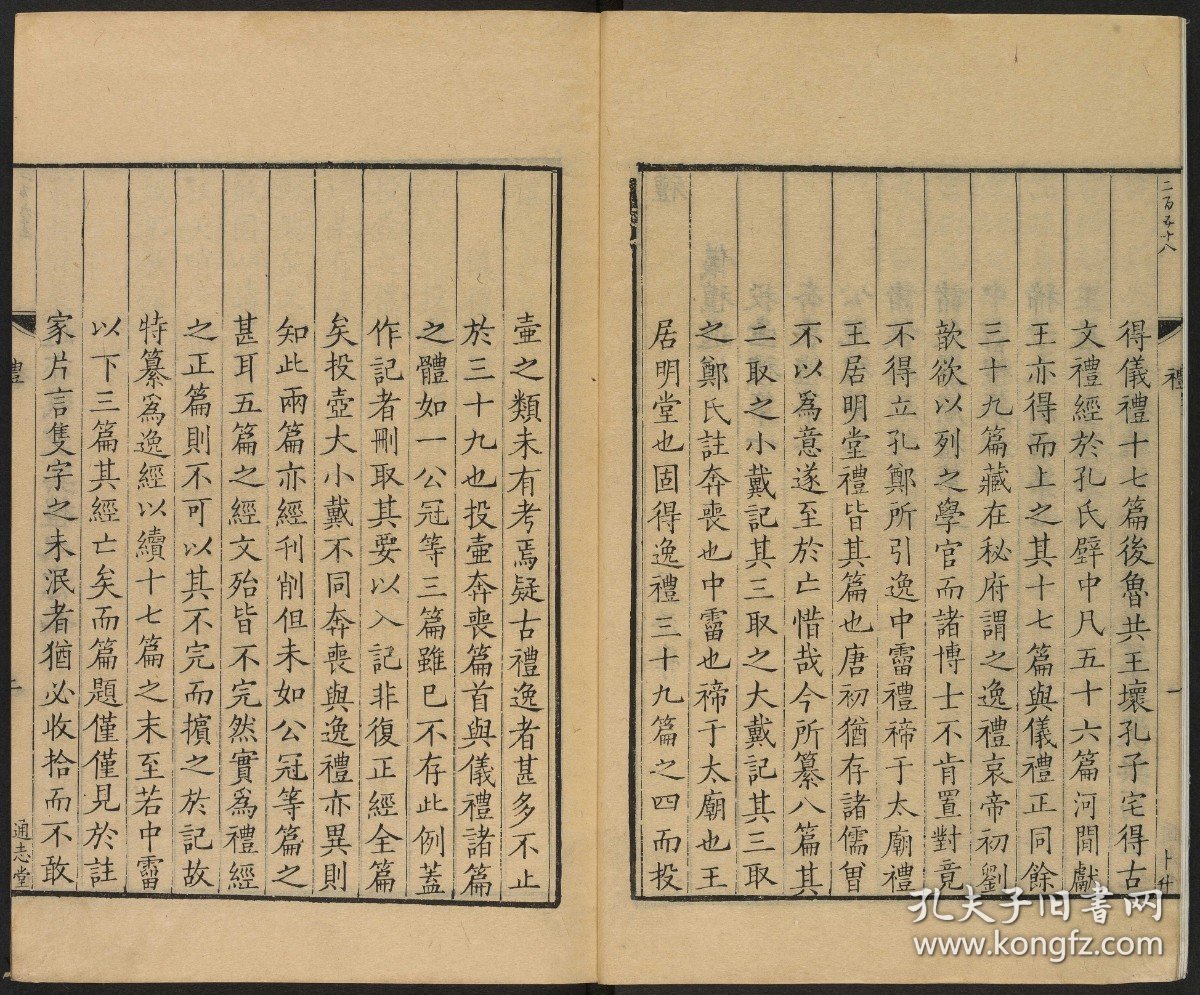 二百五十八
禮
一
得儀禮十七篇後魯共王壞孔子宅得古
文禮經於孔氏壁中凡五十六篇河閒獻
王亦得而上之其十七篇與儀禮正同餘
三十九篇藏在秘府謂之逸禮哀帝初劉
歆欲以列之學官而諸博士不肯置對竟
不得立孔鄭所引逸中霤禮禘于太廟禮
王居明堂禮皆其篇也唐初猶存諸儒曾
不以為意遂至於亡惜哉今所纂八篇其
二取之小戴記其三取之大戴記其三取
之鄭氏註奔喪也中霤也禘于太廟也王
居明堂也固得逸禮三十九篇之四而投
壺之類未有考焉疑古禮逸者甚多不止
於三十九也投壺奔喪篇首與儀禮諸篇
之體如一公冠等三篇雖已不存此例蓋
作記者刪取其要以入記非復正經全篇
矣投壺大小戴不同奔喪與逸禮亦異則
知此兩篇亦經刊削但未如公冠等篇之
甚耳五篇之經文殆皆不完然實為禮經
之正篇則不可以其不完而擯之於記故
特纂為逸經以續十七篇之末至若中霤
以下三篇其經亡矣而篇題僅僅見於註
家片言隻字之未泯者猶必收拾而不敢
禮
二
通志堂
孔夫子旧书网
www.kongfz.com